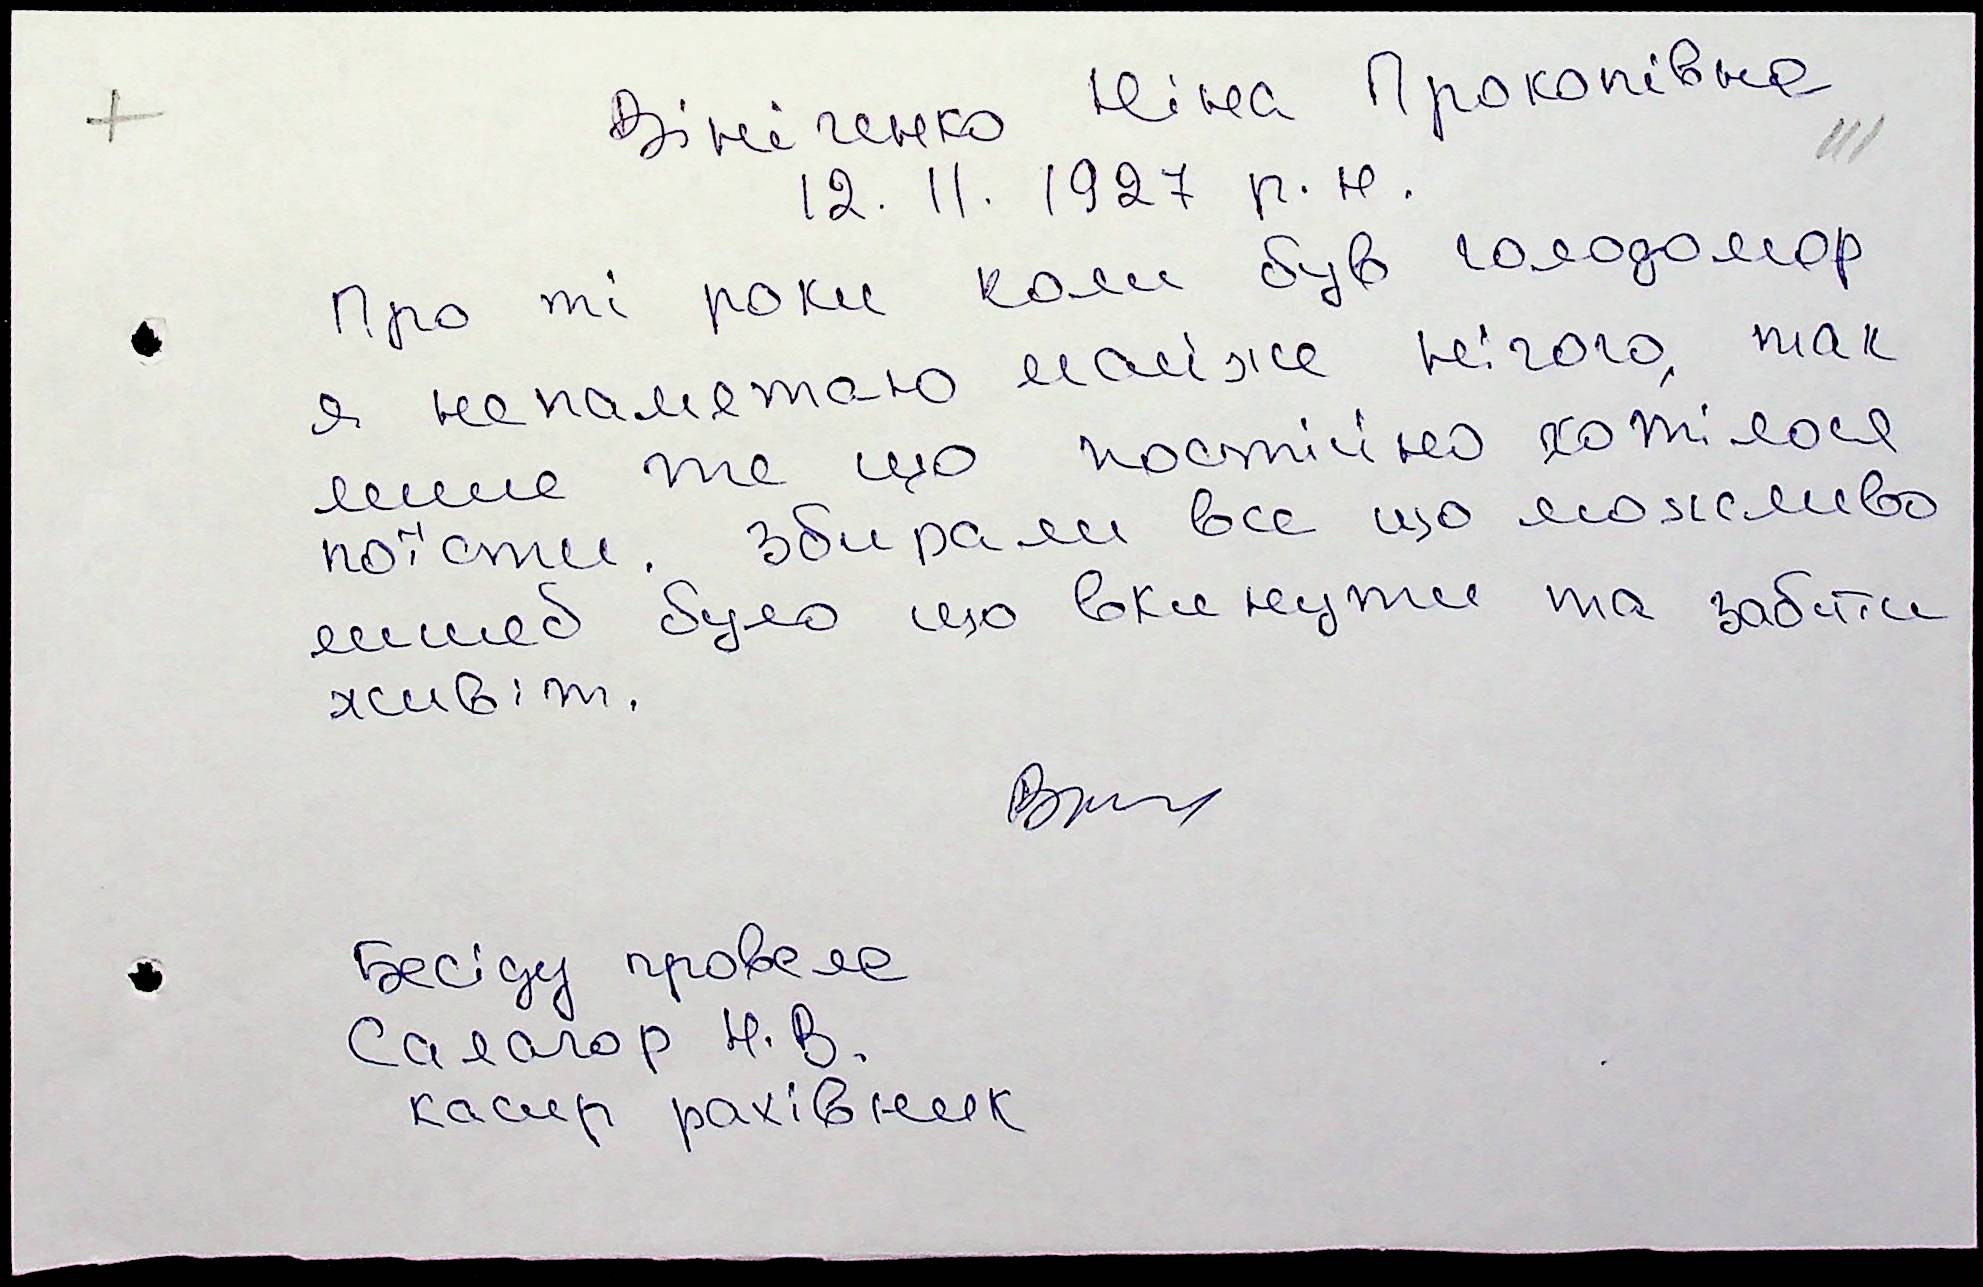 Вініченко Ніна Прокопівна
12. 11. 1927 р. н.
Про ті роки коли був голодомор
я непамятаю майже нічого, так
лише те що постійно хотілося
поїсти. Збирали все що можливо
лишеб було що вкинути та забити
живіт.
Бесіду провела
Салагор Н. В.
касир рахівник